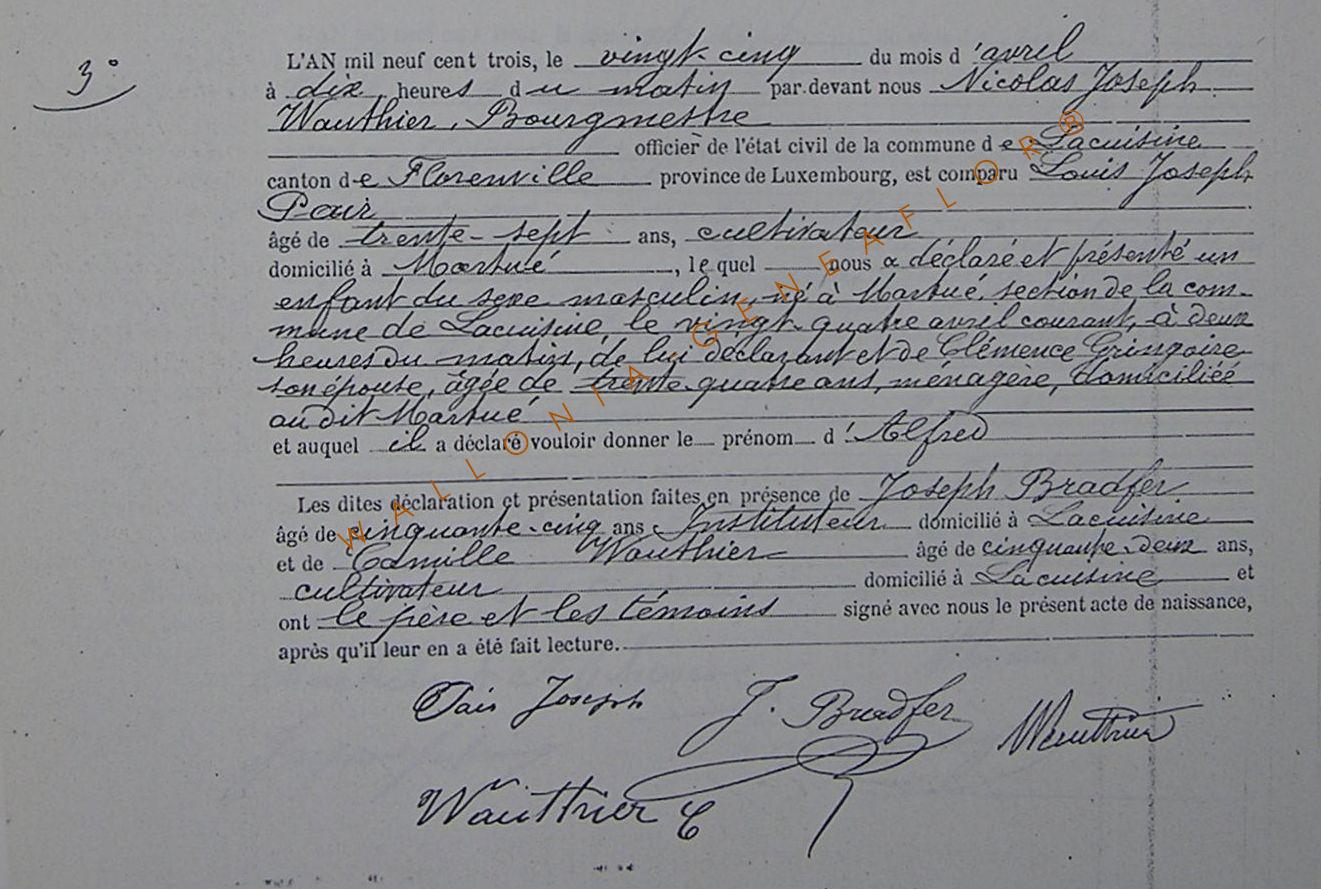 3°
L'AN mil neuf cent trois, le vingt-cinq du mois d'avril
à dix heures du matin par devant nous Nicolas Joseph
Wauthier, Bourgmestre
officier de l'état civil de la commune de Lacuisine
canton de Florenville province de Luxembourg, est comparu Louis Joseph
Pair
âgé de trente-sept ans, cultivateur
domicilié à Martué, le quel nous a déclaré et présenté un
enfant du sexe masculin, né à Martué, section de la com-
mune de Lacuisine, le vingt-quatre avril courant, à deux
heures du matin, de lui déclarant et de Clémence Gringoire
son épouse, âgée de trente-quatre ans, ménagère, domiciliée
au dit Martué
et auquel il a déclaré vouloir donner le prénom d'Alfred
Les dites déclaration et présentation faites en présence de Joseph Bradfer
âgé de cinquante-cinq ans Instituteur domicilié à Lacuisine
et de Camille Wauthier âgé de cinquante-deux ans,
cultivateur domicilié à Lacuisine et
ont le père et les témoins signé avec nous le présent acte de naissance,
après qu'il leur en a été fait lecture.
Pair Joseph J. Bradfer Wauthier
Wauthier C
WALLONIA-GENEAFLOR®